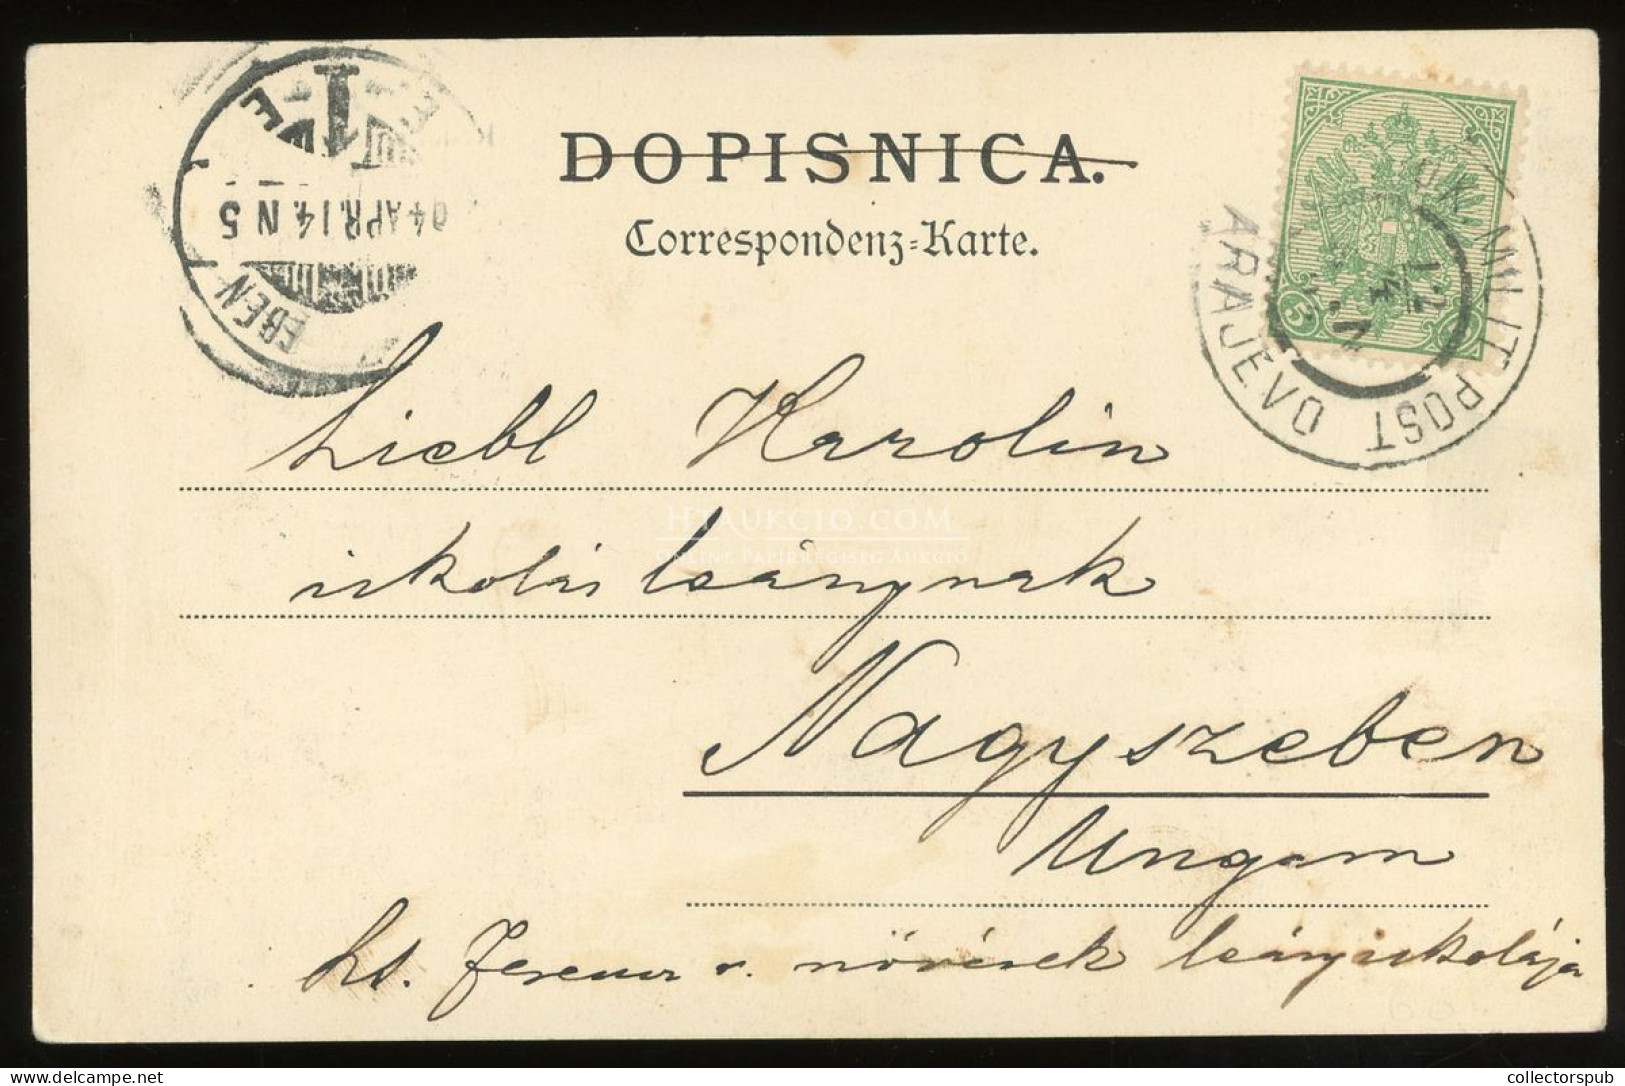 DOPISNICA.
Correspondenz-Karte.
EBEN
04 APR. 14. N 5
1
K.K. MILIT. POST
ARAJEVO
12
4
5
Liebl Karolin
iskolás leánynak
Nagyszeben
Ungarn
HTAUKCIO.COM
ONLINE PAPÍRRÉGISÉG AUKCIÓ
szt. Ferencz r. nővérek leányiskolája
collectorspub